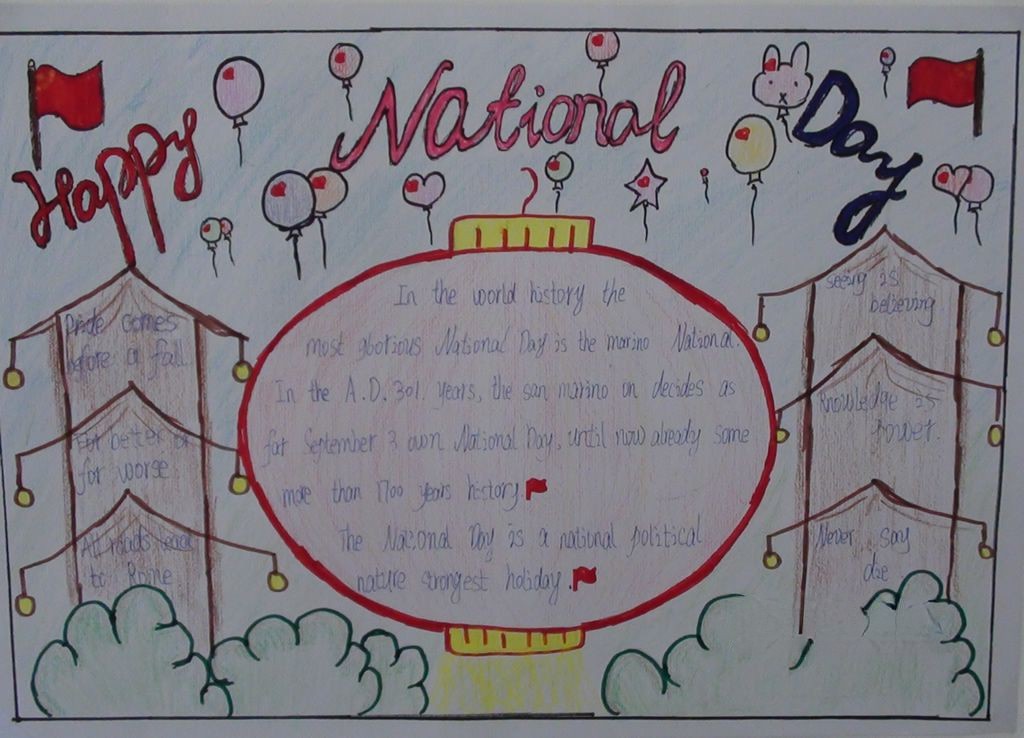 Happy National Day
In the world history the
most glorious National Day is the marino National.
In the A.D.301 years, the san marino on decides as
far September 3 own National Day, until now already some
more than 1700 years history.
The National Day is a national political
nature strongest holiday.
Pride comes
before a fall
For better or
for worse
All roads lead
to Rome
seeing is
believing.
Knowledge is
Power.
Never say
die